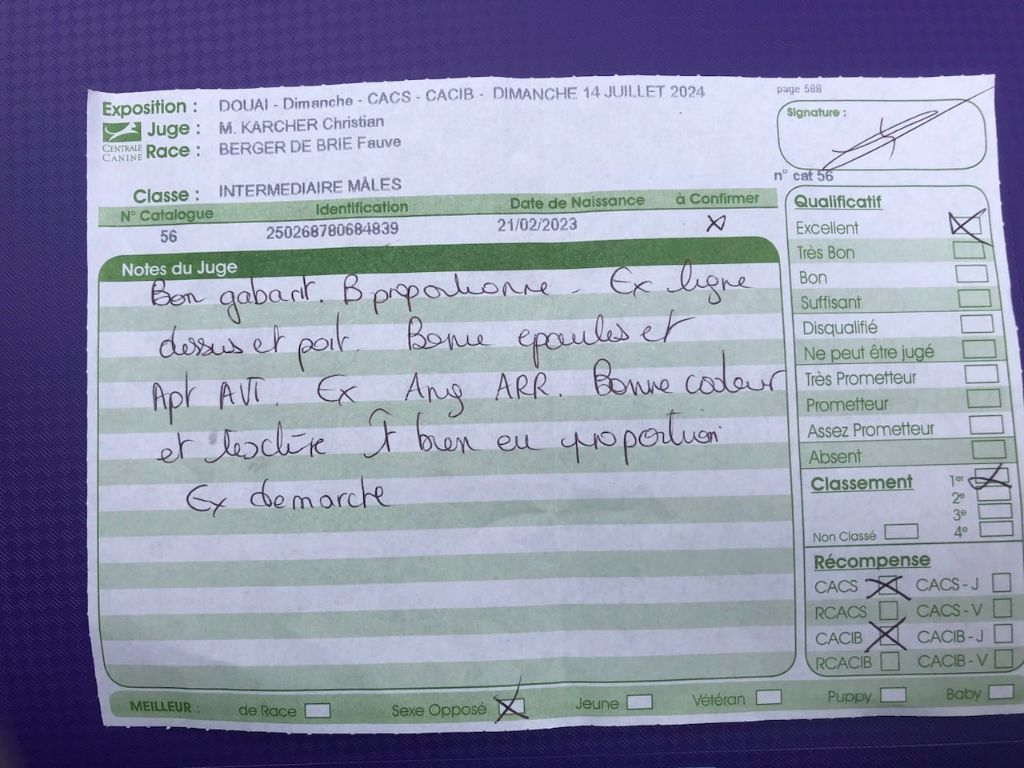 Exposition : DOUAI - Dimanche - CACS - CACIB - DIMANCHE 14 JUILLET 2024
page 588
Juge : M. KARCHER Christian
CENTRALE CANINE
Race : BERGER DE BRIE Fauve
Signature :
n° cat 56
Classe : INTERMEDIAIRE MÂLES
N° Catalogue Identification Date de Naissance à Confirmer
56 250268780684839 21/02/2023 X
Notes du Juge
Bon gabarit. B proportionne - Ex ligne
dessus et poil. Bonne epaules et
Apt AVT. Ex Ang ARR. Bonne couleur
et bien en proportion
Ex demarche
Qualificatif
Excellent X
Très Bon
Bon
Suffisant
Disqualifié
Ne peut être jugé
Très Prometteur
Prometteur
Assez Prometteur
Absent
Classement 1er X
2e
3e
Non Classé 4e
Récompense
CACS X CACS - J
RCACS CACS - V
CACIB X CACIB - J
RCACIB CACIB - V
MEILLEUR : de Race Sexe Opposé X Jeune Vétéran Puppy Baby